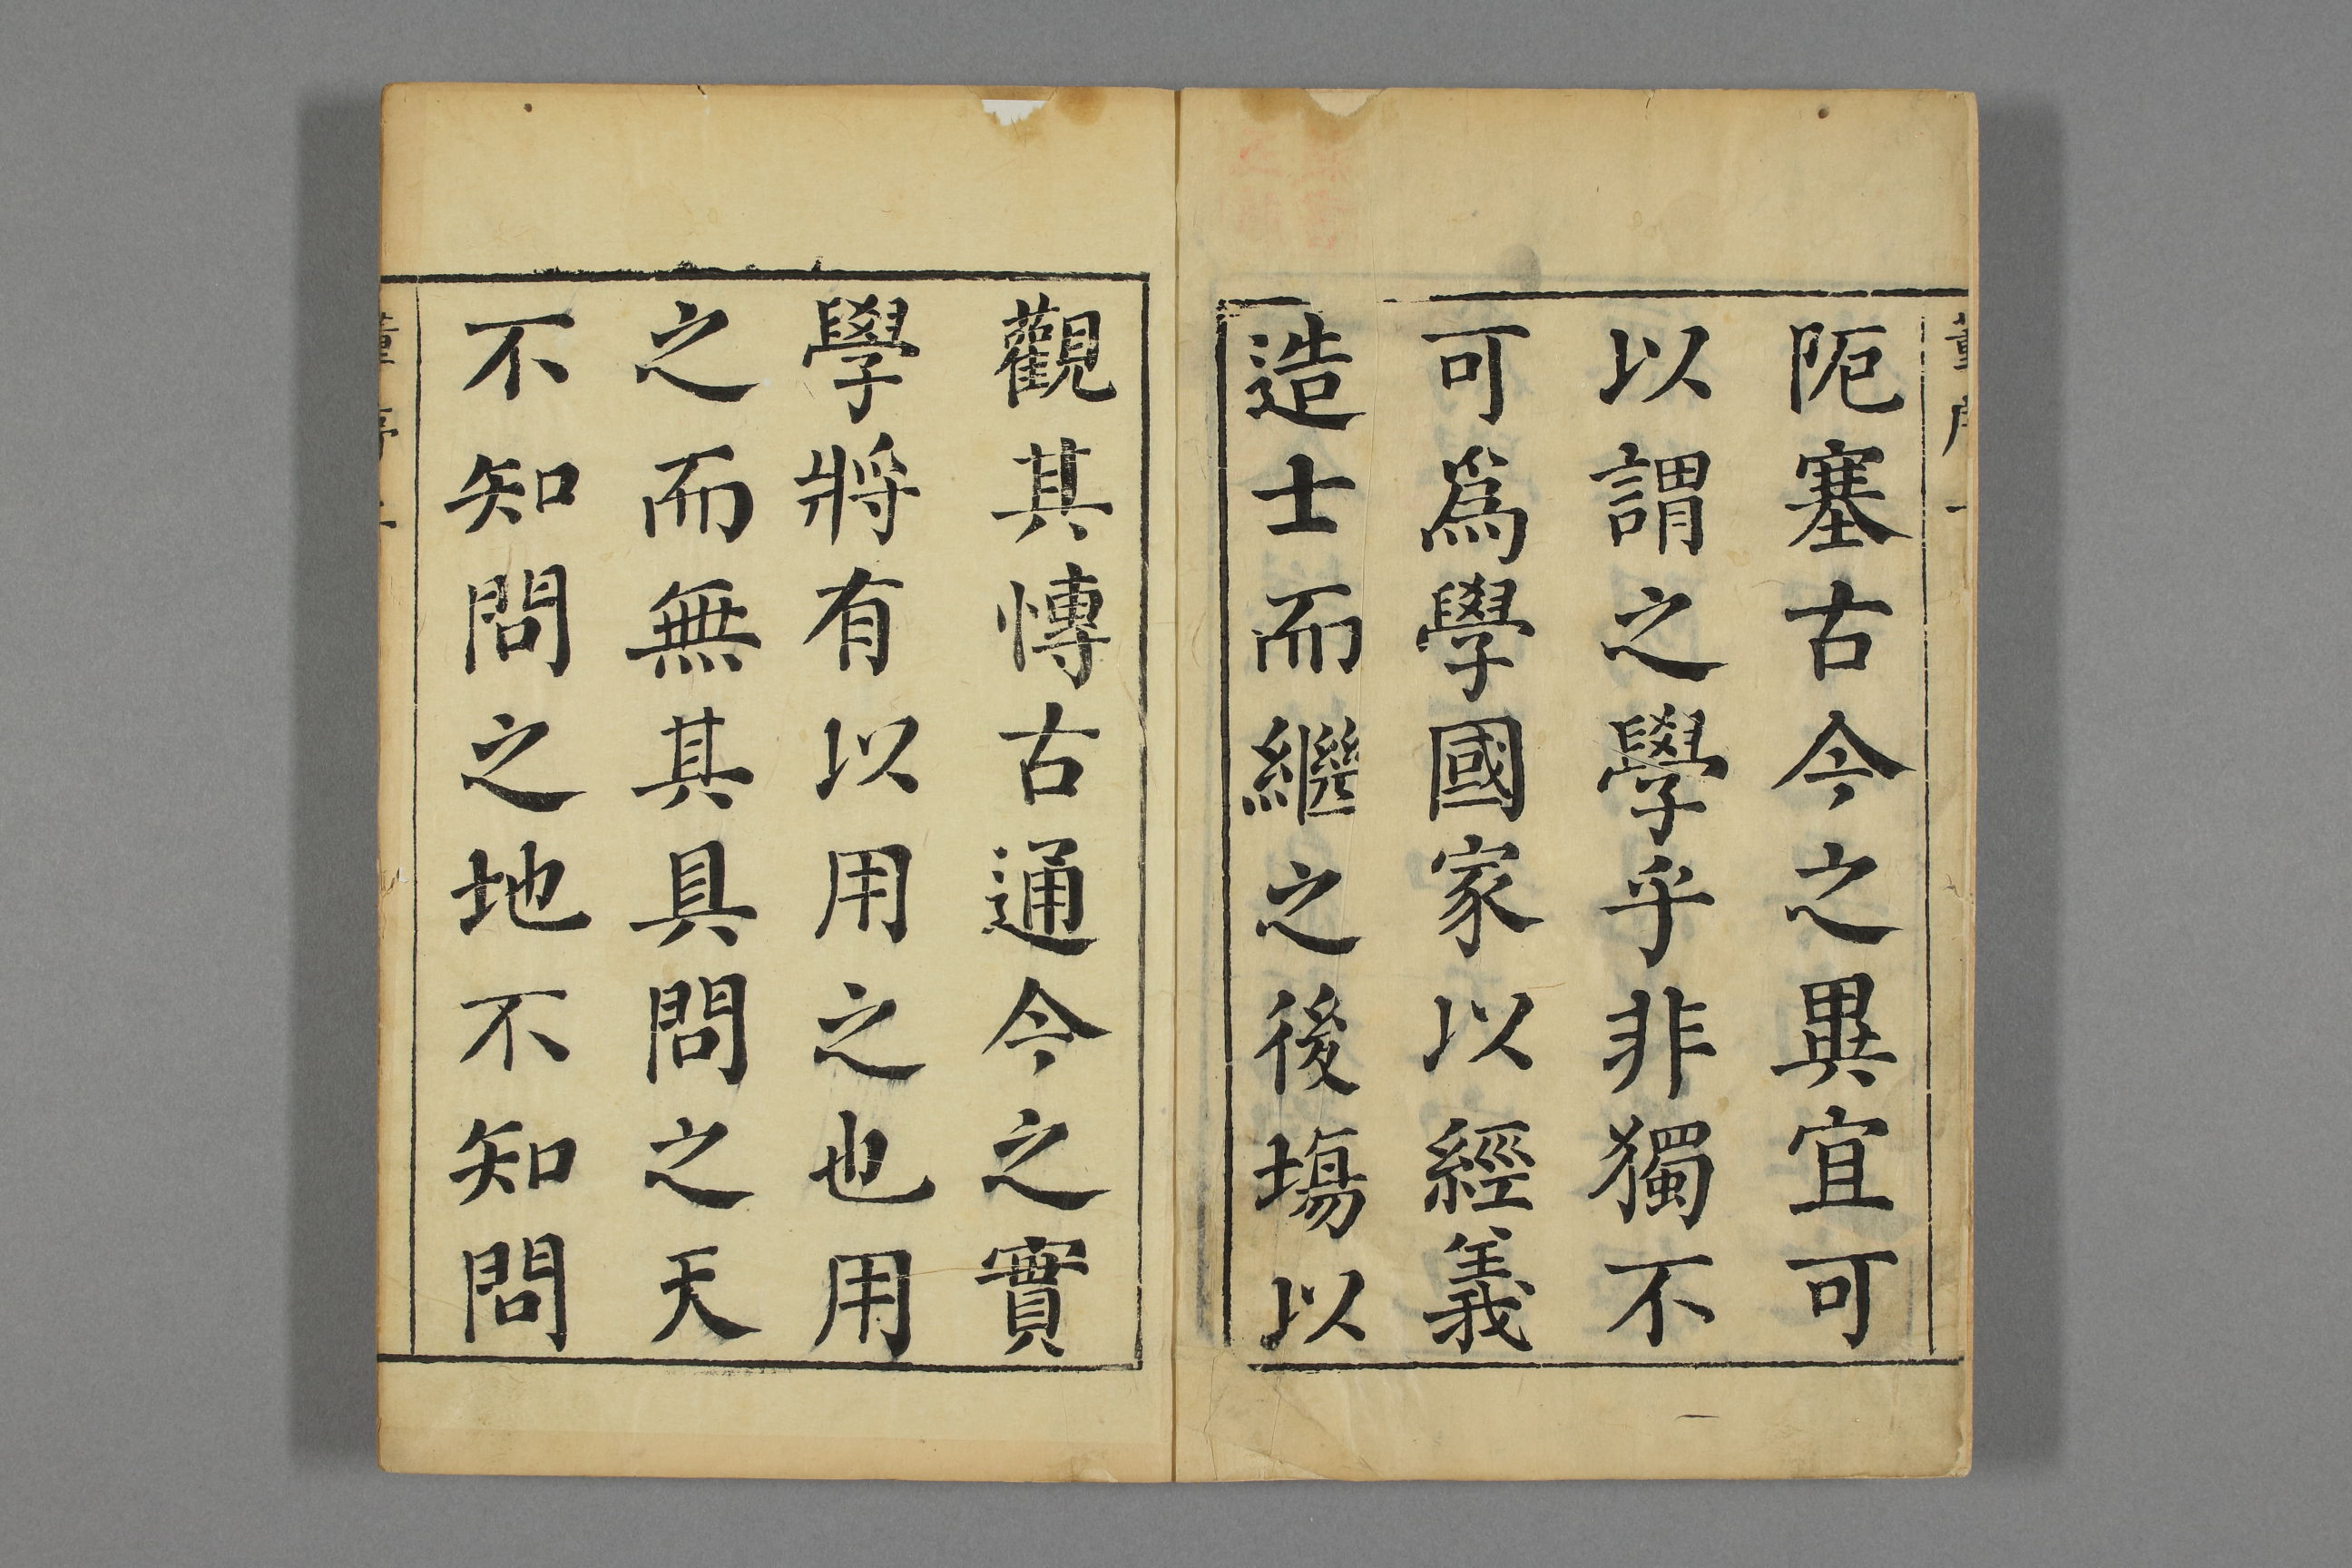 阨塞古今之異宜可
以謂之學乎非獨不
可爲學國家以經義
造士而繼之後塲以
觀其愽古通今之實
學將有以用之也用
之而無其具問之天
不知問之地不知問